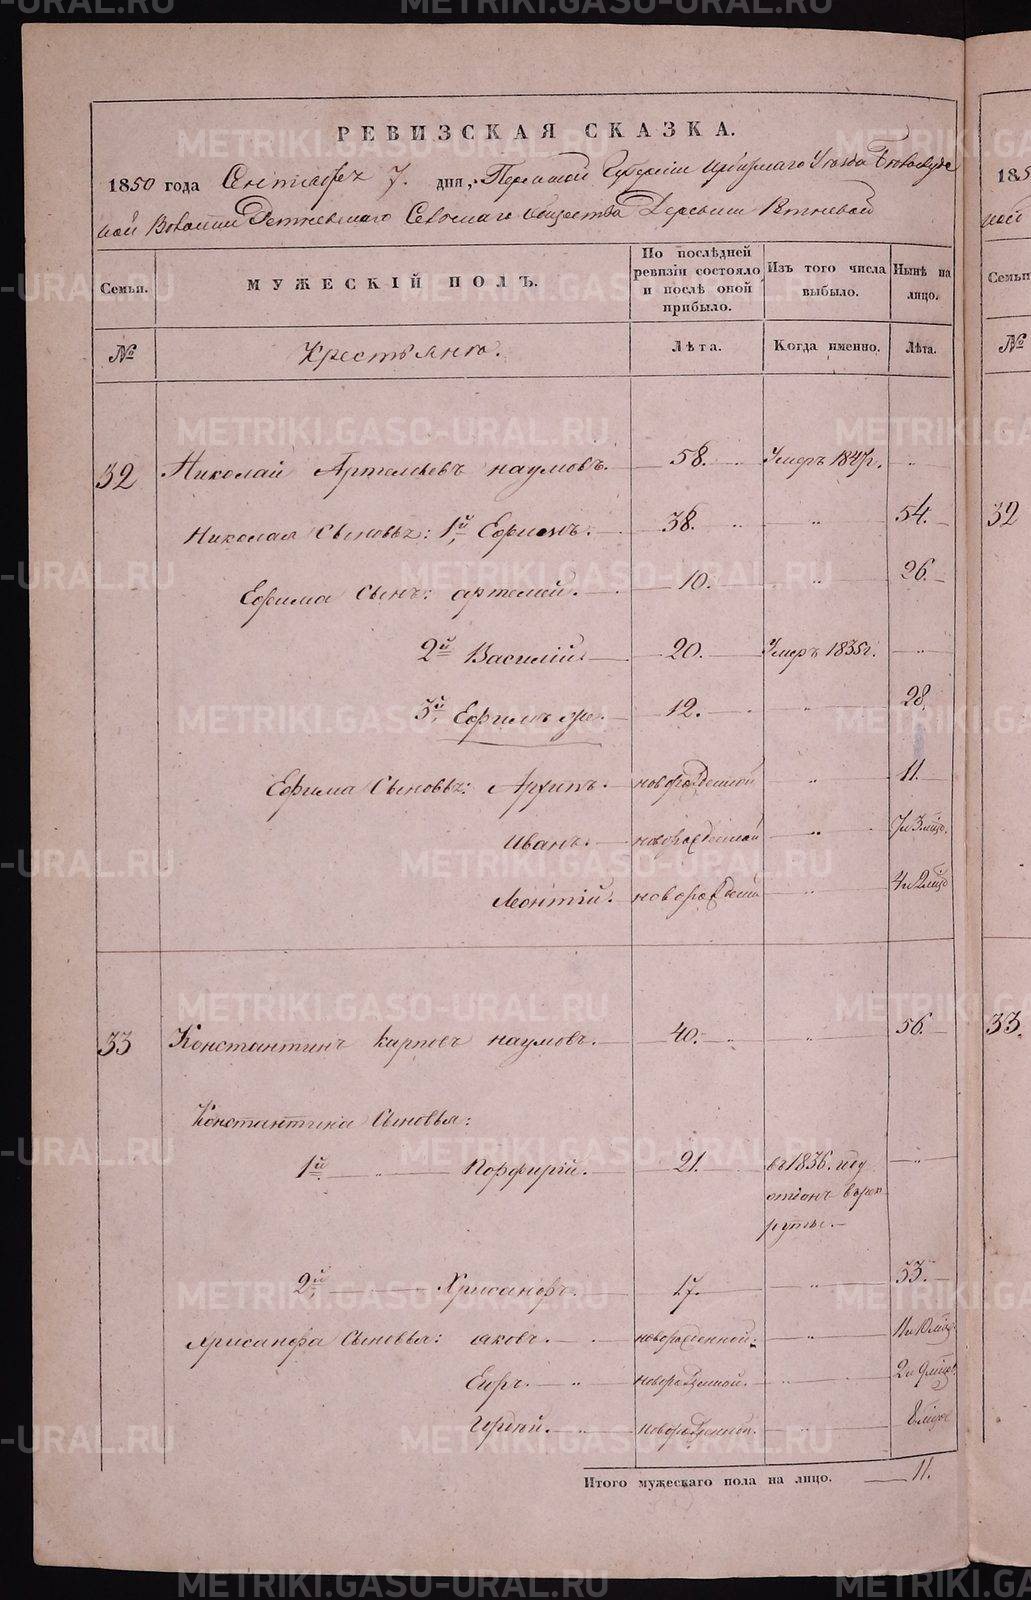 РЕВИЗСКАЯ СКАЗКА.
1850 года Сентября 7. дня, Пермской Губернии Ирбитскаго Уезда
ной Волости Сельскаго общества Деревни
Семьи.
МУЖЕСКІЙ ПОЛЪ.
По послѣдней ревизіи состояло и послѣ оной прибыло.
Изъ того числа выбыло.
Нынѣ на лицо.
№
Крестьяне.
Лѣта.
Когда именно.
Лѣта.
32 Николай Артемьевъ наумовъ. 58. Умеръ 1847г. "
Николая Сыновья: 1й Ефимъ. 38. " " 54.
Ефима Сынъ: артемий. 10. " 26.
2й Василій. 20. Умеръ 1835г.
3й Ефимъ же. 12. " 28.
Ефима Сыновья: Архипъ. новорожденной " 11.
Иванъ. новорожденной " 7 и 3 мѣс.
Леонтій. новорожденной " 4 и 2 мѣс
33 Константинъ карповъ наумовъ. 40. " " 56.
Константина Сыновья:
1й " Порфирій. 21. въ 1836. году "
отданъ в рек
руты.
2й Хрисанфъ. 17. " 33.
Хрисанфа Сыновья: яковъ. новорожденной. " 11 и 10 мѣс.
Егоръ. " новорожденной. " 2 и 9 мѣс.
Гордѣй. " новорожденной. " 8 мѣс.
Итого мужескаго пола на лицо. 11.
185
ной
Семьи
№
32
33.
METRIKI.GASO-URAL.RU